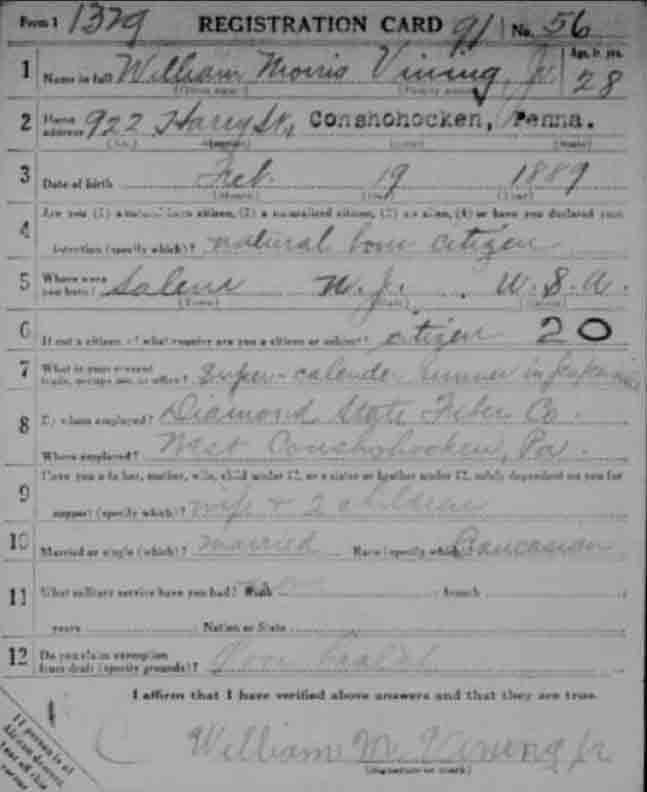 Form 1 1329 REGISTRATION CARD 91 No. 56
1 Name in full William Morris Vining, Jr. Age, in yrs. 28
(Given name) (Family name)
2 Home address 922 Harry St., Conshohocken, Penna.
(No.) (Street) (City) (State)
3 Date of birth Feb. 19 1889
(Month) (Day) (Year)
4 Are you (1) a natural born citizen, (2) a naturalized citizen, (3) an alien, (4) or have you declared your
intention (specify which)? natural born citizen
5 Where were you born? Salem N.J. U.S.A.
(Town) (State) (Nation)
6 If not a citizen, of what country are you a citizen or subject? citizen 20
7 What is your present trade, occupation, or office? Super-calender runner in
8 By whom employed? Diamond State Fiber Co.
Where employed? West Conshohocken, Pa.
9 Have you a father, mother, wife, child under 12, or a sister or brother under 12, solely dependent on you for
support (specify which)? wife + 2 children
10 Married or single (which)? married Race (specify which)? Caucasian
11 What military service have you had? Rank branch
years Nation or State
12 Do you claim exemption from draft (specify grounds)? Poor health
I affirm that I have verified above answers and that they are true.
William M. Vining Jr
(Signature or mark)
If person is of
African descent,
tear off this
corner